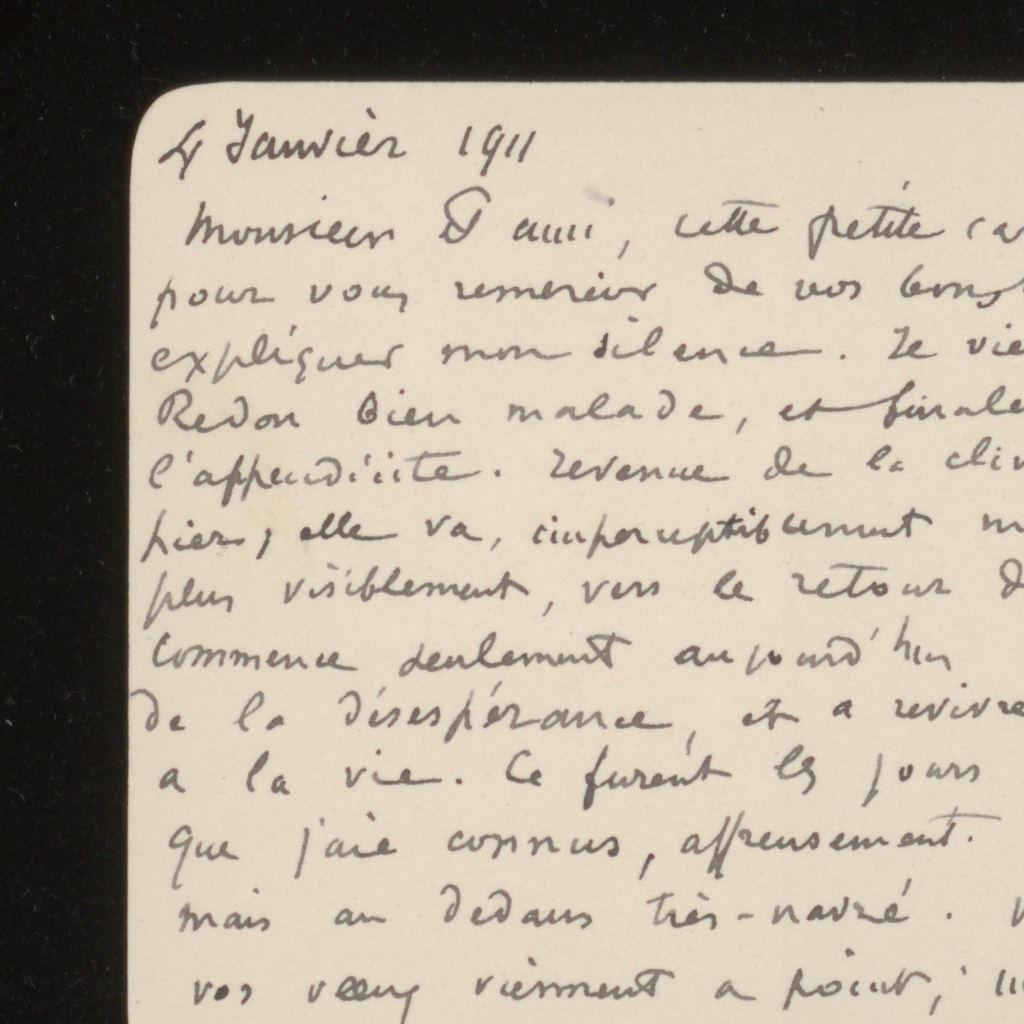 4 Janvièr 1911
Monsieur & ami, cette petite ca
pour vous remercier de vos bons
expliquer mon silence. Je vie
Redon bien malade, et finale
l'appendicite. revenue de la clin
hier, elle va, imperceptiblement m
plus visiblement, vers le retour d
commence seulement aujourd'hui
de la désespérance, et a revivre
a la vie. Ce furent les jours
que j'aie connus, affreusement.
mais au dedans très-navré. V
vos vœux viennent a point;